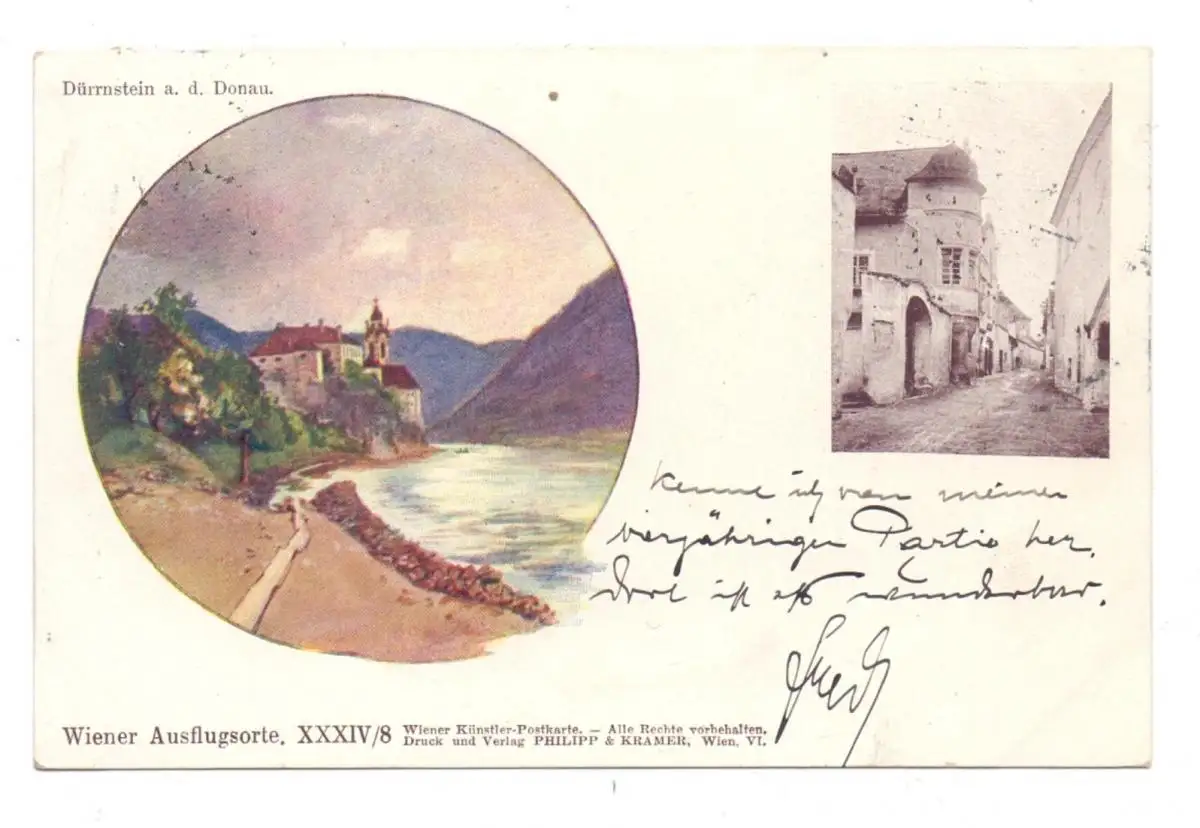 Dürrnstein a. d. Donau.
Kenne ich von meiner
vierjährigen Partie her.
Dort ist es wunderbar.
Wiener Ausflugsorte. XXXIV/8
Wiener Künstler-Postkarte. — Alle Rechte vorbehalten.
Druck und Verlag PHILIPP & KRAMER, Wien, VI.